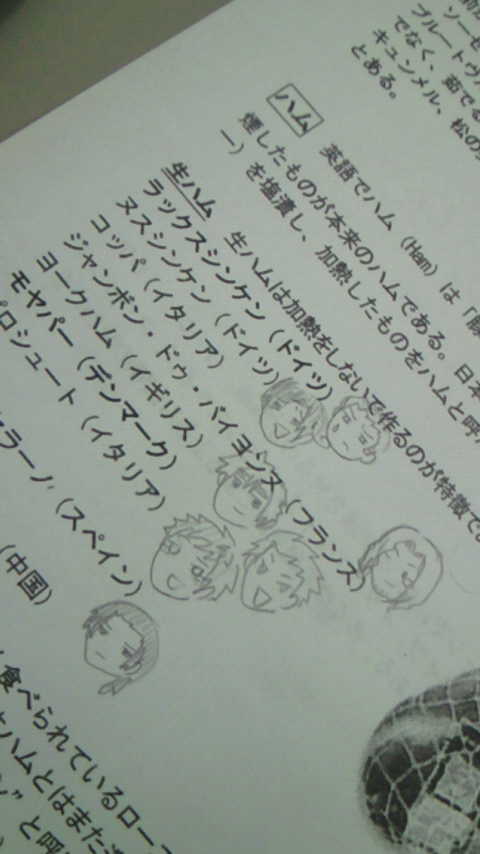 ソーセ
ブルートヴ
でなく、茹でる
キュンメル、松の
とある。
ハム 英語でハム（Ham）は「豚
燻したものが本来のハムである。日本
ー）を塩漬し、加熱したものをハムと呼
生ハム 生ハムは加熱をしないで作るのが特徴で
ラックスシンケン（ドイツ）
ヌスシンケン（ドイツ）
コッパ（イタリア）
ジャンボン・ドゥ・バイヨンヌ（フランス）
ヨークハム（イギリス）
モヤパー（デンマーク）
プロシュート（イタリア）
ラーノ（スペイン）
（中国）
食べられているロー
ハムとはまた
ン”と呼